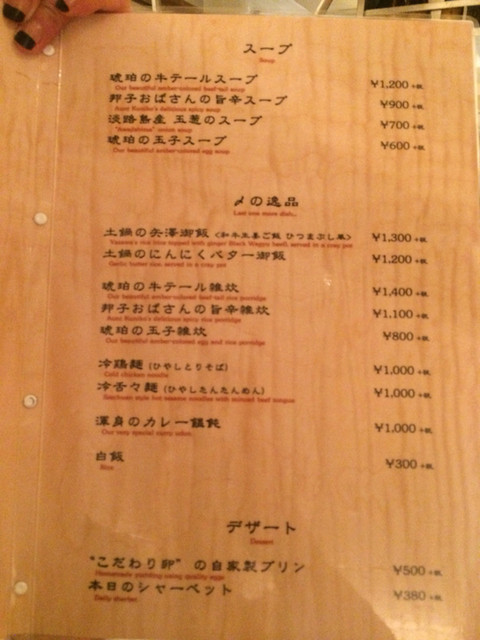 スープ
Soup
琥珀の牛テールスープ ¥1,200 +税
Our beautiful amber-colored beef-tail soup
邦子おばさんの旨辛スープ ¥900 +税
Aunt Kuniko's delicious spicy soup
淡路島産 玉葱のスープ ¥700 +税
"Awajishima" onion soup
琥珀の玉子スープ ¥600 +税
Our beautiful amber-colored egg soup
〆の逸品
Last one more dish..
土鍋の矢澤御飯 <和牛生姜ご飯 ひつまぶし風> ¥1,300 +税
Yazawa's rice topped with ginger Black Wagyu beef, served in a cray pot
土鍋のにんにくバター御飯 ¥1,200 +税
Garlic butter rice served in a cray pot
琥珀の牛テール雑炊 ¥1,400 +税
Our beautiful amber-colored beef-tail rice porridge
邦子おばさんの旨辛雑炊 ¥1,100 +税
Aunt Kuniko's delicious spicy rice porridge
琥珀の玉子雑炊 ¥800 +税
Our beautiful amber-colored egg and rice porridge
冷鶏麺 (ひやしとりそば) ¥1,000 +税
Cold chicken noodle
冷舌々麺 (ひやしたんたんめん) ¥1,000 +税
Szechuan style hot sesame noodles with minced beef tongue
渾身のカレー饂飩 ¥1,000 +税
Our very special curry udon
白飯 ¥300 +税
Rice
デザート
Dessert
"こだわり卵" の自家製プリン ¥500 +税
Homemade pudding using quality eggs
本日のシャーベット ¥380 +税
Daily sherbet